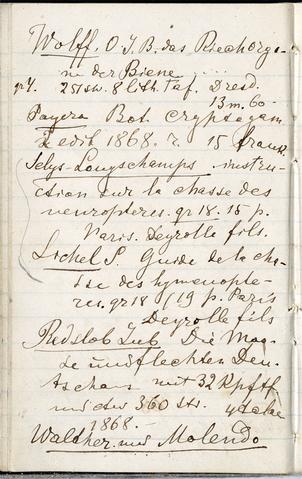 Wolff. O. J. B. das Riechorga-
ne der Biene
gr 4. 251 str. 8 lith. Taf. Dresd.
13 m. 60
Payera Bot. cryptogam
2 edit 1868. r. 15 frank
Selys-Longschamps instru-
ction sur la chasse des
neuropteres. gr 18. 15 p.
Paris. Deyrolle fils.
Lichel S. Guide de la cha-
sse des hymenopte-
res. gr 18 / 19 p. Paris
Deyrolle fils
Redslob Jub Die Moo-
se und flechten Deu-
tschans mit 32 Kpftf
und 360 str.
1868.
Walther und Molendo